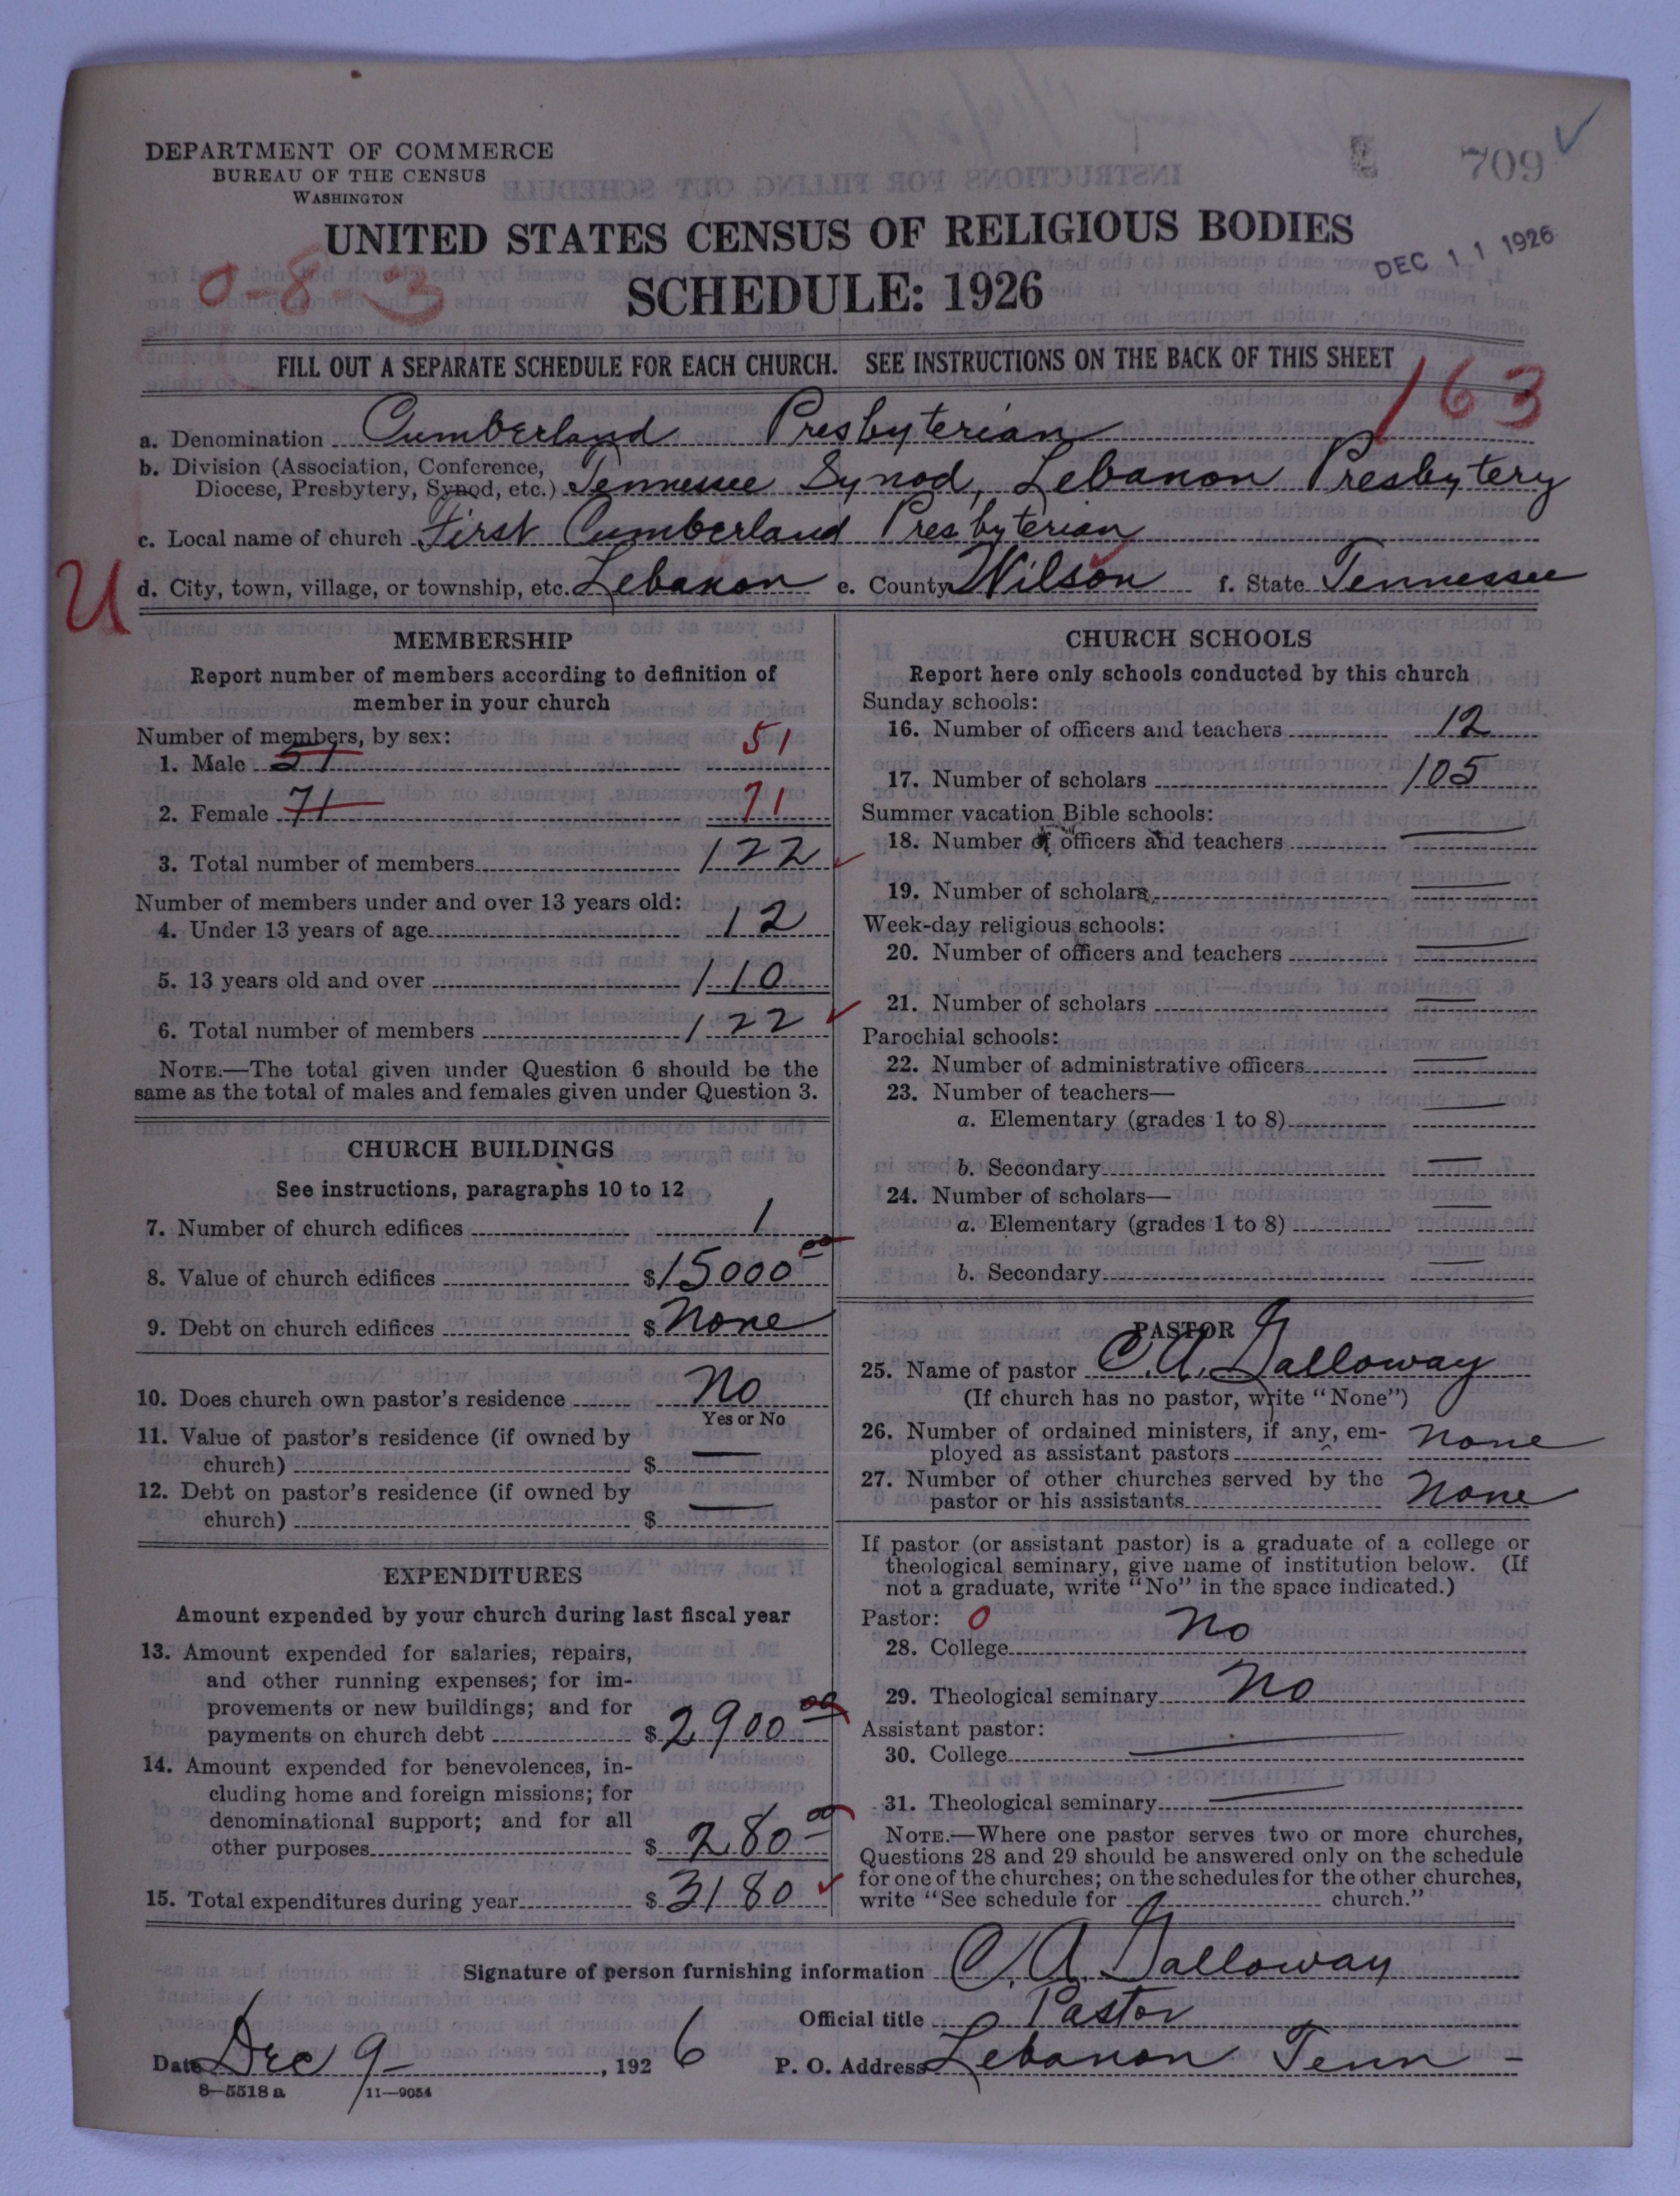 DEPARTMENT OF COMMERCE
BUREAU OF THE CENSUS
WASHINGTON
709
UNITED STATES CENSUS OF RELIGIOUS BODIES
DEC 11 1926
0-8-3
SCHEDULE: 1926
FILL OUT A SEPARATE SCHEDULE FOR EACH CHURCH. SEE INSTRUCTIONS ON THE BACK OF THIS SHEET
163
a. Denomination Cumberland Presbyterian
b. Division (Association, Conference,
Diocese, Presbytery, Synod, etc.) Tennessee Synod, Lebanon Presbytery
c. Local name of church First Cumberland Presbyterian
U
d. City, town, village, or township, etc. Lebanon e. County Wilson f. State Tennessee
MEMBERSHIP
Report number of members according to definition of
member in your church
Number of members, by sex:
1. Male 51 51
2. Female 71 71
3. Total number of members 122
Number of members under and over 13 years old:
4. Under 13 years of age 12
5. 13 years old and over 110
6. Total number of members 122
NOTE.—The total given under Question 6 should be the
same as the total of males and females given under Question 3.
CHURCH BUILDINGS
See instructions, paragraphs 10 to 12
7. Number of church edifices 1
8. Value of church edifices $15000 00
9. Debt on church edifices $ None
10. Does church own pastor's residence No
Yes or No
11. Value of pastor's residence (if owned by
church) $ —
12. Debt on pastor's residence (if owned by
church) $ —
EXPENDITURES
Amount expended by your church during last fiscal year
13. Amount expended for salaries, repairs,
and other running expenses; for im-
provements or new buildings; and for
payments on church debt $2900 00
14. Amount expended for benevolences, in-
cluding home and foreign missions; for
denominational support; and for all
other purposes $ 280 00
15. Total expenditures during year $ 3180
CHURCH SCHOOLS
Report here only schools conducted by this church
Sunday schools:
16. Number of officers and teachers 12
17. Number of scholars 105
Summer vacation Bible schools:
18. Number of officers and teachers —
19. Number of scholars —
Week-day religious schools:
20. Number of officers and teachers —
21. Number of scholars —
Parochial schools:
22. Number of administrative officers —
23. Number of teachers—
a. Elementary (grades 1 to 8) —
b. Secondary —
24. Number of scholars—
a. Elementary (grades 1 to 8) —
b. Secondary —
PASTOR
25. Name of pastor C. A. Galloway
(If church has no pastor, write "None")
26. Number of ordained ministers, if any, em-
ployed as assistant pastors None
27. Number of other churches served by the
pastor or his assistants None
If pastor (or assistant pastor) is a graduate of a college or
theological seminary, give name of institution below. (If
not a graduate, write "No" in the space indicated.)
Pastor: 0
28. College No
29. Theological seminary No
Assistant pastor:
30. College —
31. Theological seminary —
NOTE.—Where one pastor serves two or more churches,
Questions 28 and 29 should be answered only on the schedule
for one of the churches; on the schedules for the other churches,
write "See schedule for church."
Signature of person furnishing information C. A. Galloway
Official title Pastor
Date Dec 9-, 1926 P. O. Address Lebanon Tenn -
8—5518 a 11—9054